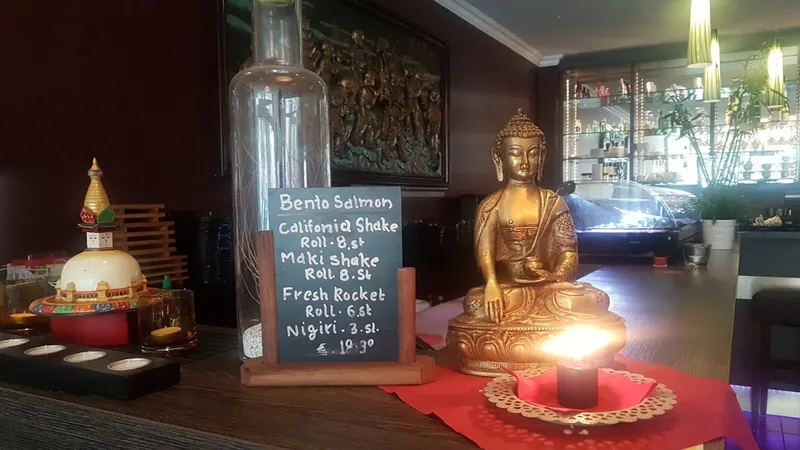 Bento Salmon
Califonia Shake
Roll - 8.st
Maki shake
Roll 8.st
Fresh Rocket
Roll - 6.st
Nigiri - 3.st.
€ 10.90